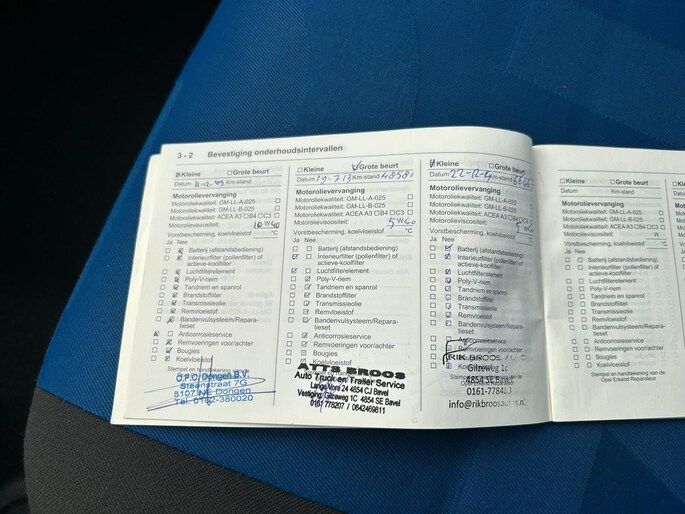 3 - 2 Bevestiging onderhoudsintervallen
Kleine Grote beurt
Datum Km-stand
Motorolievervanging
Motoroliekwaliteit: GM-LL-A-025
Motoroliekwaliteit: GM-LL-B-025
Motoroliekwaliteit: ACEA A3 B4 C3
Motorolieviscositeit: 10 W40
Vorstbescherming, koelvloeistof: °C
Ja Nee
Batterij (afstandsbediening)
Interieurfilter (pollenfilter) of
actieve-koolfilter
Luchtfilterelement
Poly-V-riem
Tandriem en spanrol
Brandstoffilter
Transmissieolie
Remvloeistof
Bandenvulsysteem/Repara-
tieset
Anticorrosieservice
Remvoeringen voor/achter
Bougies
Koelvloeistof
Stempel en handtekening van de
O.P.C. Dongen B.V.
Steenstraat 7G
5107 NE Dongen
Tel. 0162-380020
Kleine Grote beurt
Datum 19-7-13 Km-stand
Motorolievervanging
Motoroliekwaliteit: GM-LL-A-025
Motoroliekwaliteit: GM-LL-B-025
Motoroliekwaliteit: ACEA A3 B4 C3
Motorolieviscositeit: 5W40
Vorstbescherming, koelvloeistof: °C
Ja Nee
Batterij (afstandsbediening)
Interieurfilter (pollenfilter) of
actieve-koolfilter
Luchtfilterelement
Poly-V-riem
Tandriem en spanrol
Brandstoffilter
Transmissieolie
Remvloeistof
Bandenvulsysteem/Repara-
tieset
Anticorrosieservice
Remvoeringen voor/achter
Bougies
Koelvloeistof
ATTS BROOS
Auto Truck en Trailer Service
Lange Vore 24 4854 CJ Bavel
Vestiging: Gilzeweg 1C 4854 SE Bavel
0161 778207 / 0642469811
Kleine Grote beurt
Datum Km-stand
Motorolievervanging
Motoroliekwaliteit: GM-LL-A-025
Motoroliekwaliteit: GM-LL-B-025
Motoroliekwaliteit: ACEA A3 B4 C3
Motorolieviscositeit: 5W40
Vorstbescherming, koelvloeistof: °C
Ja Nee
Batterij (afstandsbediening)
Interieurfilter (pollenfilter) of
actieve-koolfilter
Luchtfilterelement
Poly-V-riem
Tandriem en spanrol
Brandstoffilter
Transmissieolie
Remvloeistof
Bandenvulsysteem/Repara-
tieset
Anticorrosieservice
Remvoeringen voor/achter
RIK BROOS
Gilzeweg 1c
4854 SE Bavel
Kleine Grote beurt
Datum Km-stand
Motorolievervanging
Motoroliekwaliteit: GM-LL-A-025
Motoroliekwaliteit: GM-LL-B-025
Motoroliekwaliteit: ACEA A3 B4 C3
Motorolieviscositeit: W
Vorstbescherming, koelvloeistof: °C
Ja Nee
Batterij (afstandsbediening)
Interieurfilter (pollenfilter) of
actieve-koolfilter
Luchtfilterelement
Poly-V-riem
Tandriem en spanrol
Brandstoffilter
Transmissieolie
Remvloeistof
Bandenvulsysteem/Repara-
tieset
Anticorrosieservice
Remvoeringen voor/achter
Bougies
Koelvloeistof
Stempel en handtekening van de
Opel Erkend Reparateur